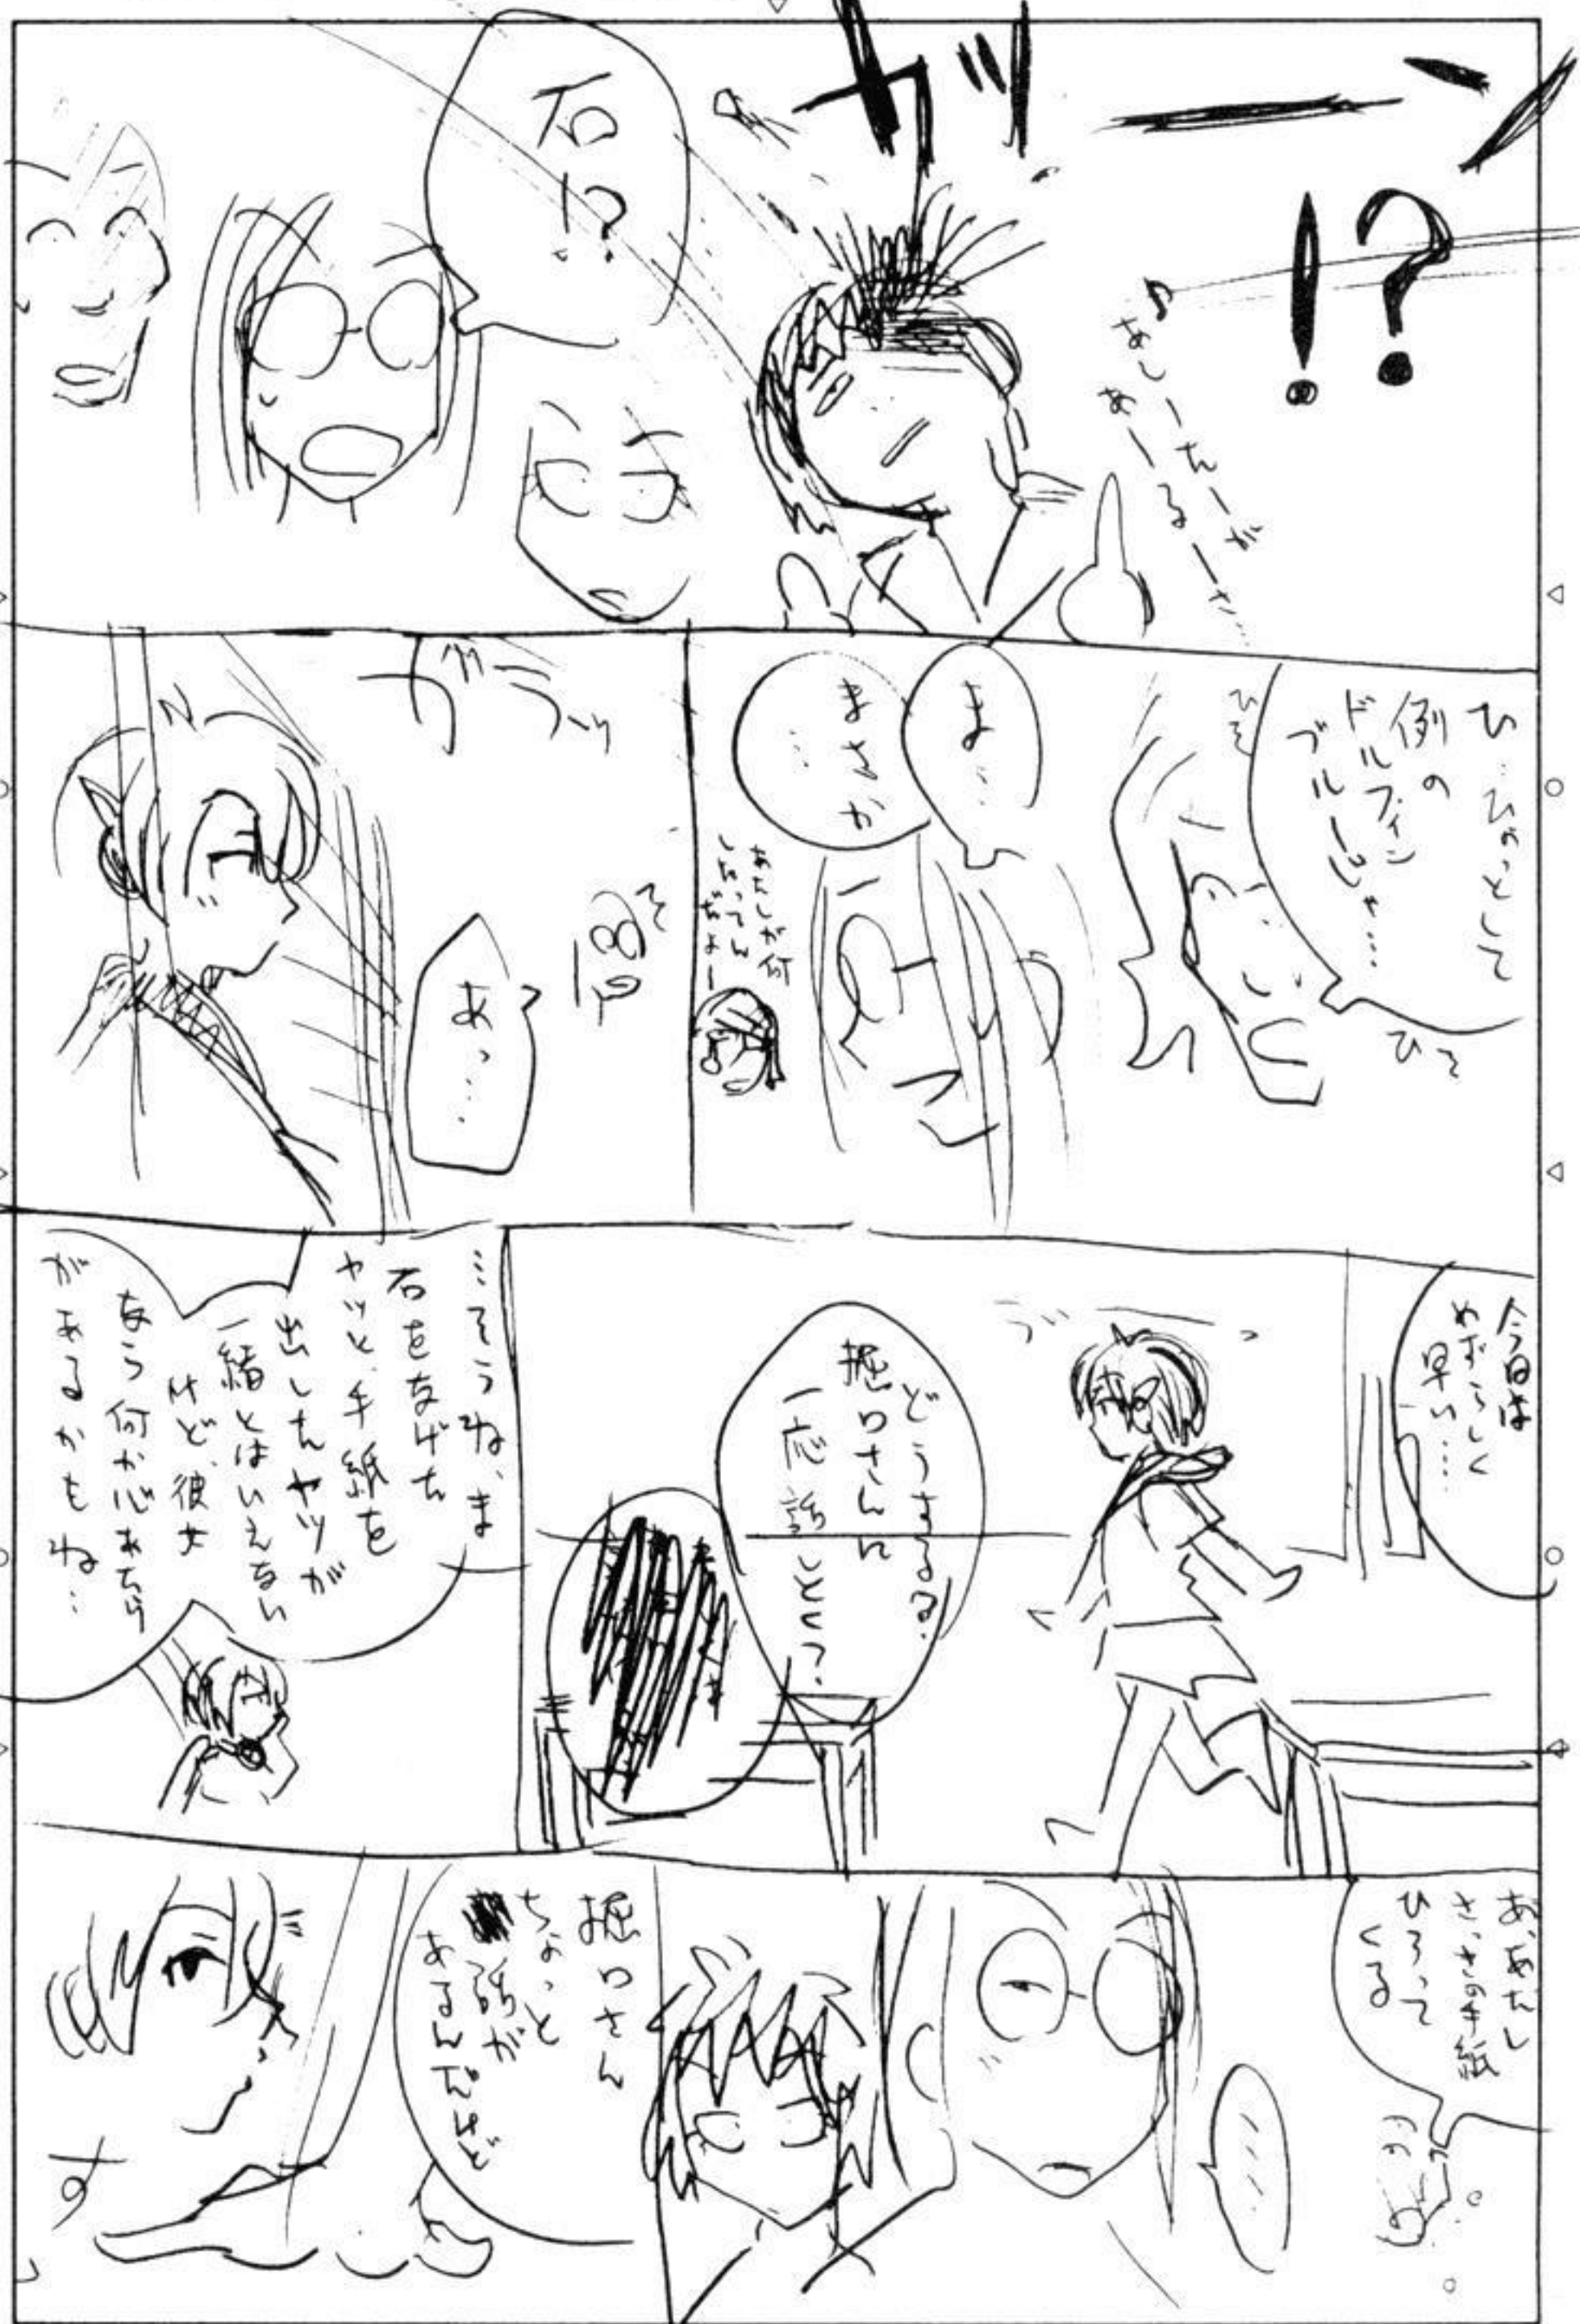 ガツーン
!?
♪あしーたーが
あーるーさ…
石!?
ひ…ひょっとして
例の
ドルフィン
ブルーじゃ…
ひそ
ひそ
ま…
まさか
…
あたしが何
したってん
だよー
ガラッ
あっ…
今日は
めずらしく
早い…
どうする?
堀口さんに
一応話しとく?
…そうね、ま
石をなげた
ヤツと、手紙を
出したヤツが
一緒とはいえない
けど、彼女
なら何か心あたり
があるかもね…
あ、あたし
さっきの手紙
ひろって
くる
……
堀口さん
ちょっと
話が
あるんだけど
す